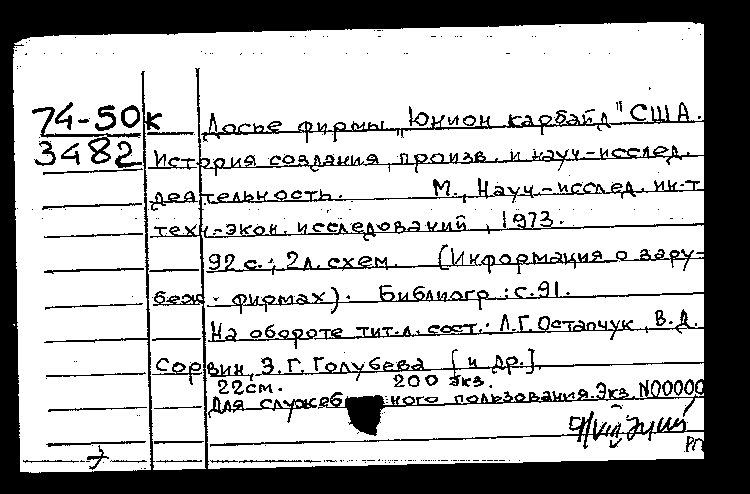 74-50к Досье фирмы „Юнион карбайд" США.
3482 История создания, произв. и науч-исслед.
деятельность. М., Науч.-исслед. ин-т
техн-экон. исследований, 1973.
92 с.; 2 л. схем. (Информация о зару-
беж. фирмах). Библиогр.: с. 91.
На обороте тит. л. сост.: Л.Г. Остапчук, В.Д.
Сорвин, Э.Г. Голубева [и др.].
22 см. 200 экз.
Для служебного пользования. Экз. N00000